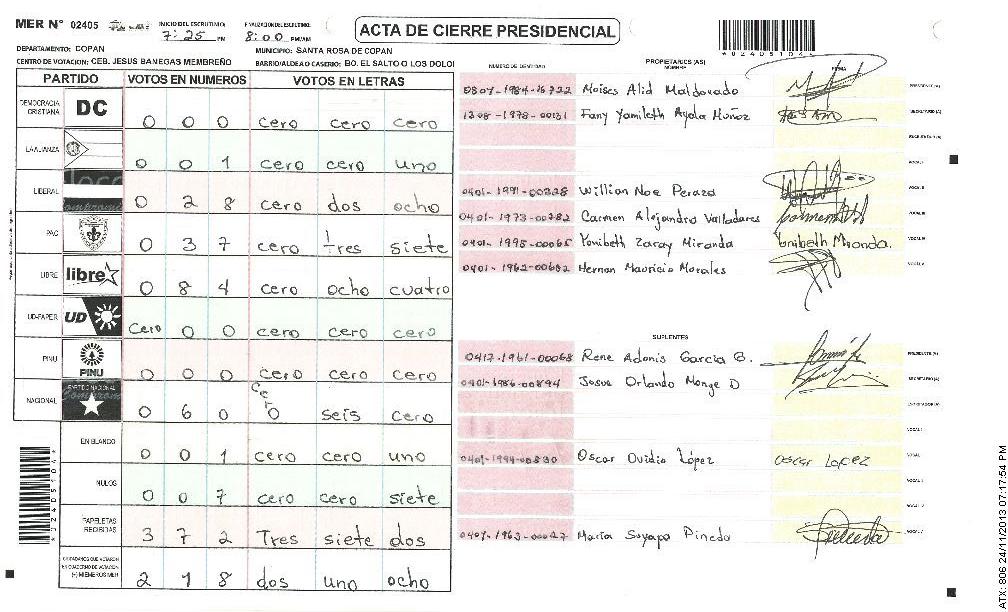 MER N° 02405 INICIO DEL ESCRUTINIO: 7:25 PM FINALIZACION ESCRUTINIO: 8:00 PM/AM
ACTA DE CIERRE PRESIDENCIAL
DEPARTAMENTO: COPAN MUNICIPIO: SANTA ROSA DE COPAN
CENTRO DE VOTACION: CEB. JESUS BANEGAS MEMBREÑO BARRIO/ALDEA O CASERIO: BO. EL SALTO O LOS DOLOI
PARTIDO VOTOS EN NUMEROS VOTOS EN LETRAS
DEMOCRACIA CRISTIANA DC 0 0 0 cero cero cero
LA ALIANZA 0 0 1 cero cero uno
LIBERAL 0 2 8 cero dos ocho
PAC 0 3 7 cero tres siete
LIBRE libre 0 8 4 cero ocho cuatro
UD-FAPER UD Cero 0 0 cero cero cero
PINU PINU 0 0 0 cero cero cero
NACIONAL PARTIDO NACIONAL 0 6 0 cero seis cero
EN BLANCO 0 0 1 cero cero uno
NULOS 0 0 7 cero cero siete
PAPELETAS RECIBIDAS 3 7 2 Tres siete dos
CIUDADANOS QUE VOTARON EN CUADERNO DE VOTACION (+) MIEMBROS MER 2 1 8 dos uno ocho
NUMERO DE IDENTIDAD PROPIETARIOS (AS) NOMBRE FIRMA
Moises Alid Maldonado PRESIDENTE (A)
1208-1978-00131 Fany Yamileth Ayala Muñoz SECRETARIO (A)
0401-1991-00328 Willian Noe Peraza
0401-1973-00782 Carmen Alejandro Valladares
0401-1995-00065 Yonibeth Zaray Miranda Yonibeth Miranda.
0401-1962-00632 Hernan Mauricio Morales
SUPLENTES
0417-1961-00068 Rene Adonis Garcia B. PRESIDENTE (A)
0401-1986-00894 Josue Orlando Monge D SECRETARIO (A)
0401-1994-00830 Oscar Ovidio López Oscar Lopez
Maria Suyapa Pineda
ATX: 806 24/11/2013 07:17:54 PM